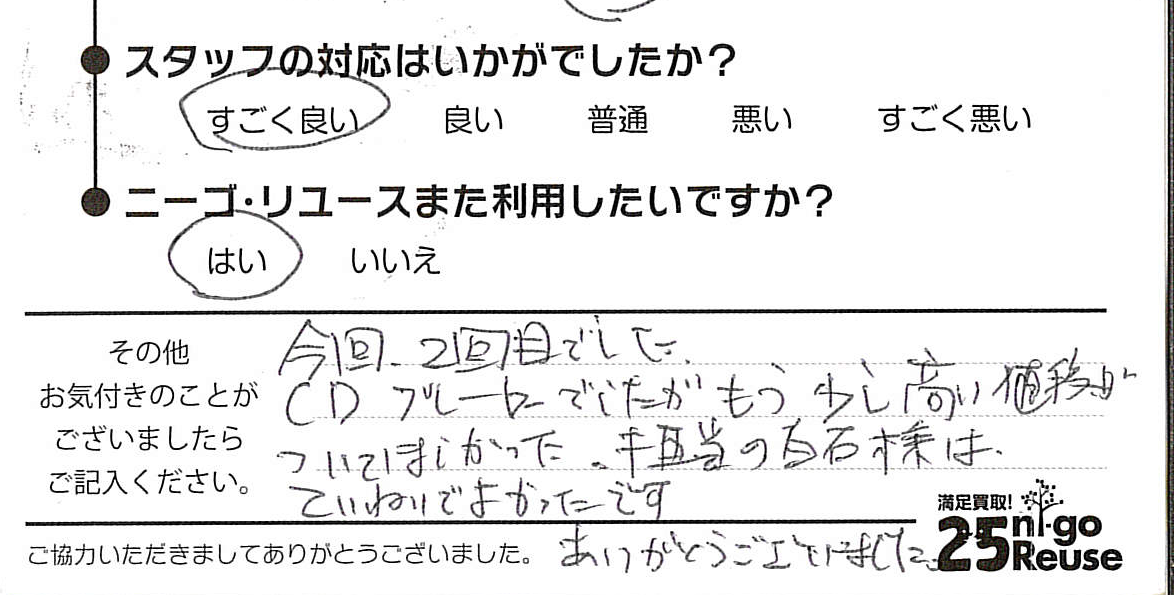 スタッフの対応はいかがでしたか？
すごく良い 良い 普通 悪い すごく悪い
ニーゴ・リユースまた利用したいですか？
はい いいえ
その他
お気付きのことが
ございましたら
ご記入ください。
今回、2回目でした。
CDプレーヤーでしたがもう少し高い値段が
ついてほしかった。担当の白石様は、
ていねいでよかったです
ありがとうございました。
ご協力いただきましてありがとうございました。
満足買取!
25 ni-go
Reuse